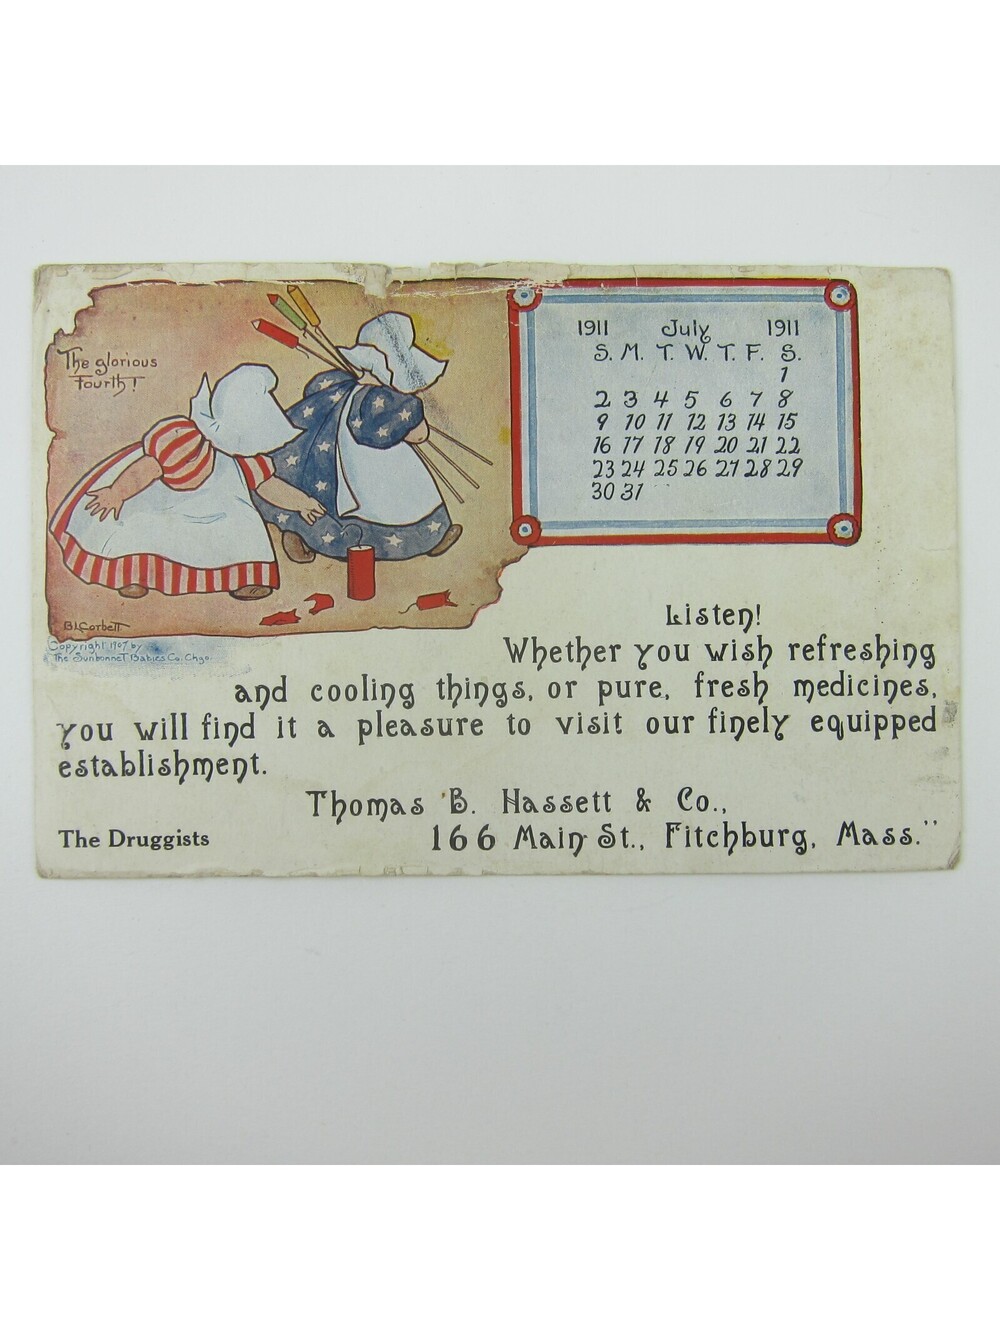 The glorious
Fourth!
B.L.Corbett
Copyright 1907 by
The Sunbonnet Babies Co. Chgo.
1911 July 1911
S. M. T. W. T. F. S.
1
2 3 4 5 6 7 8
9 10 11 12 13 14 15
16 17 18 19 20 21 22
23 24 25 26 27 28 29
30 31
Listen!
Whether you wish refreshing
and cooling things, or pure, fresh medicines,
you will find it a pleasure to visit our finely equipped
establishment.
Thomas B. Hassett & Co.,
The Druggists 166 Main St., Fitchburg, Mass."